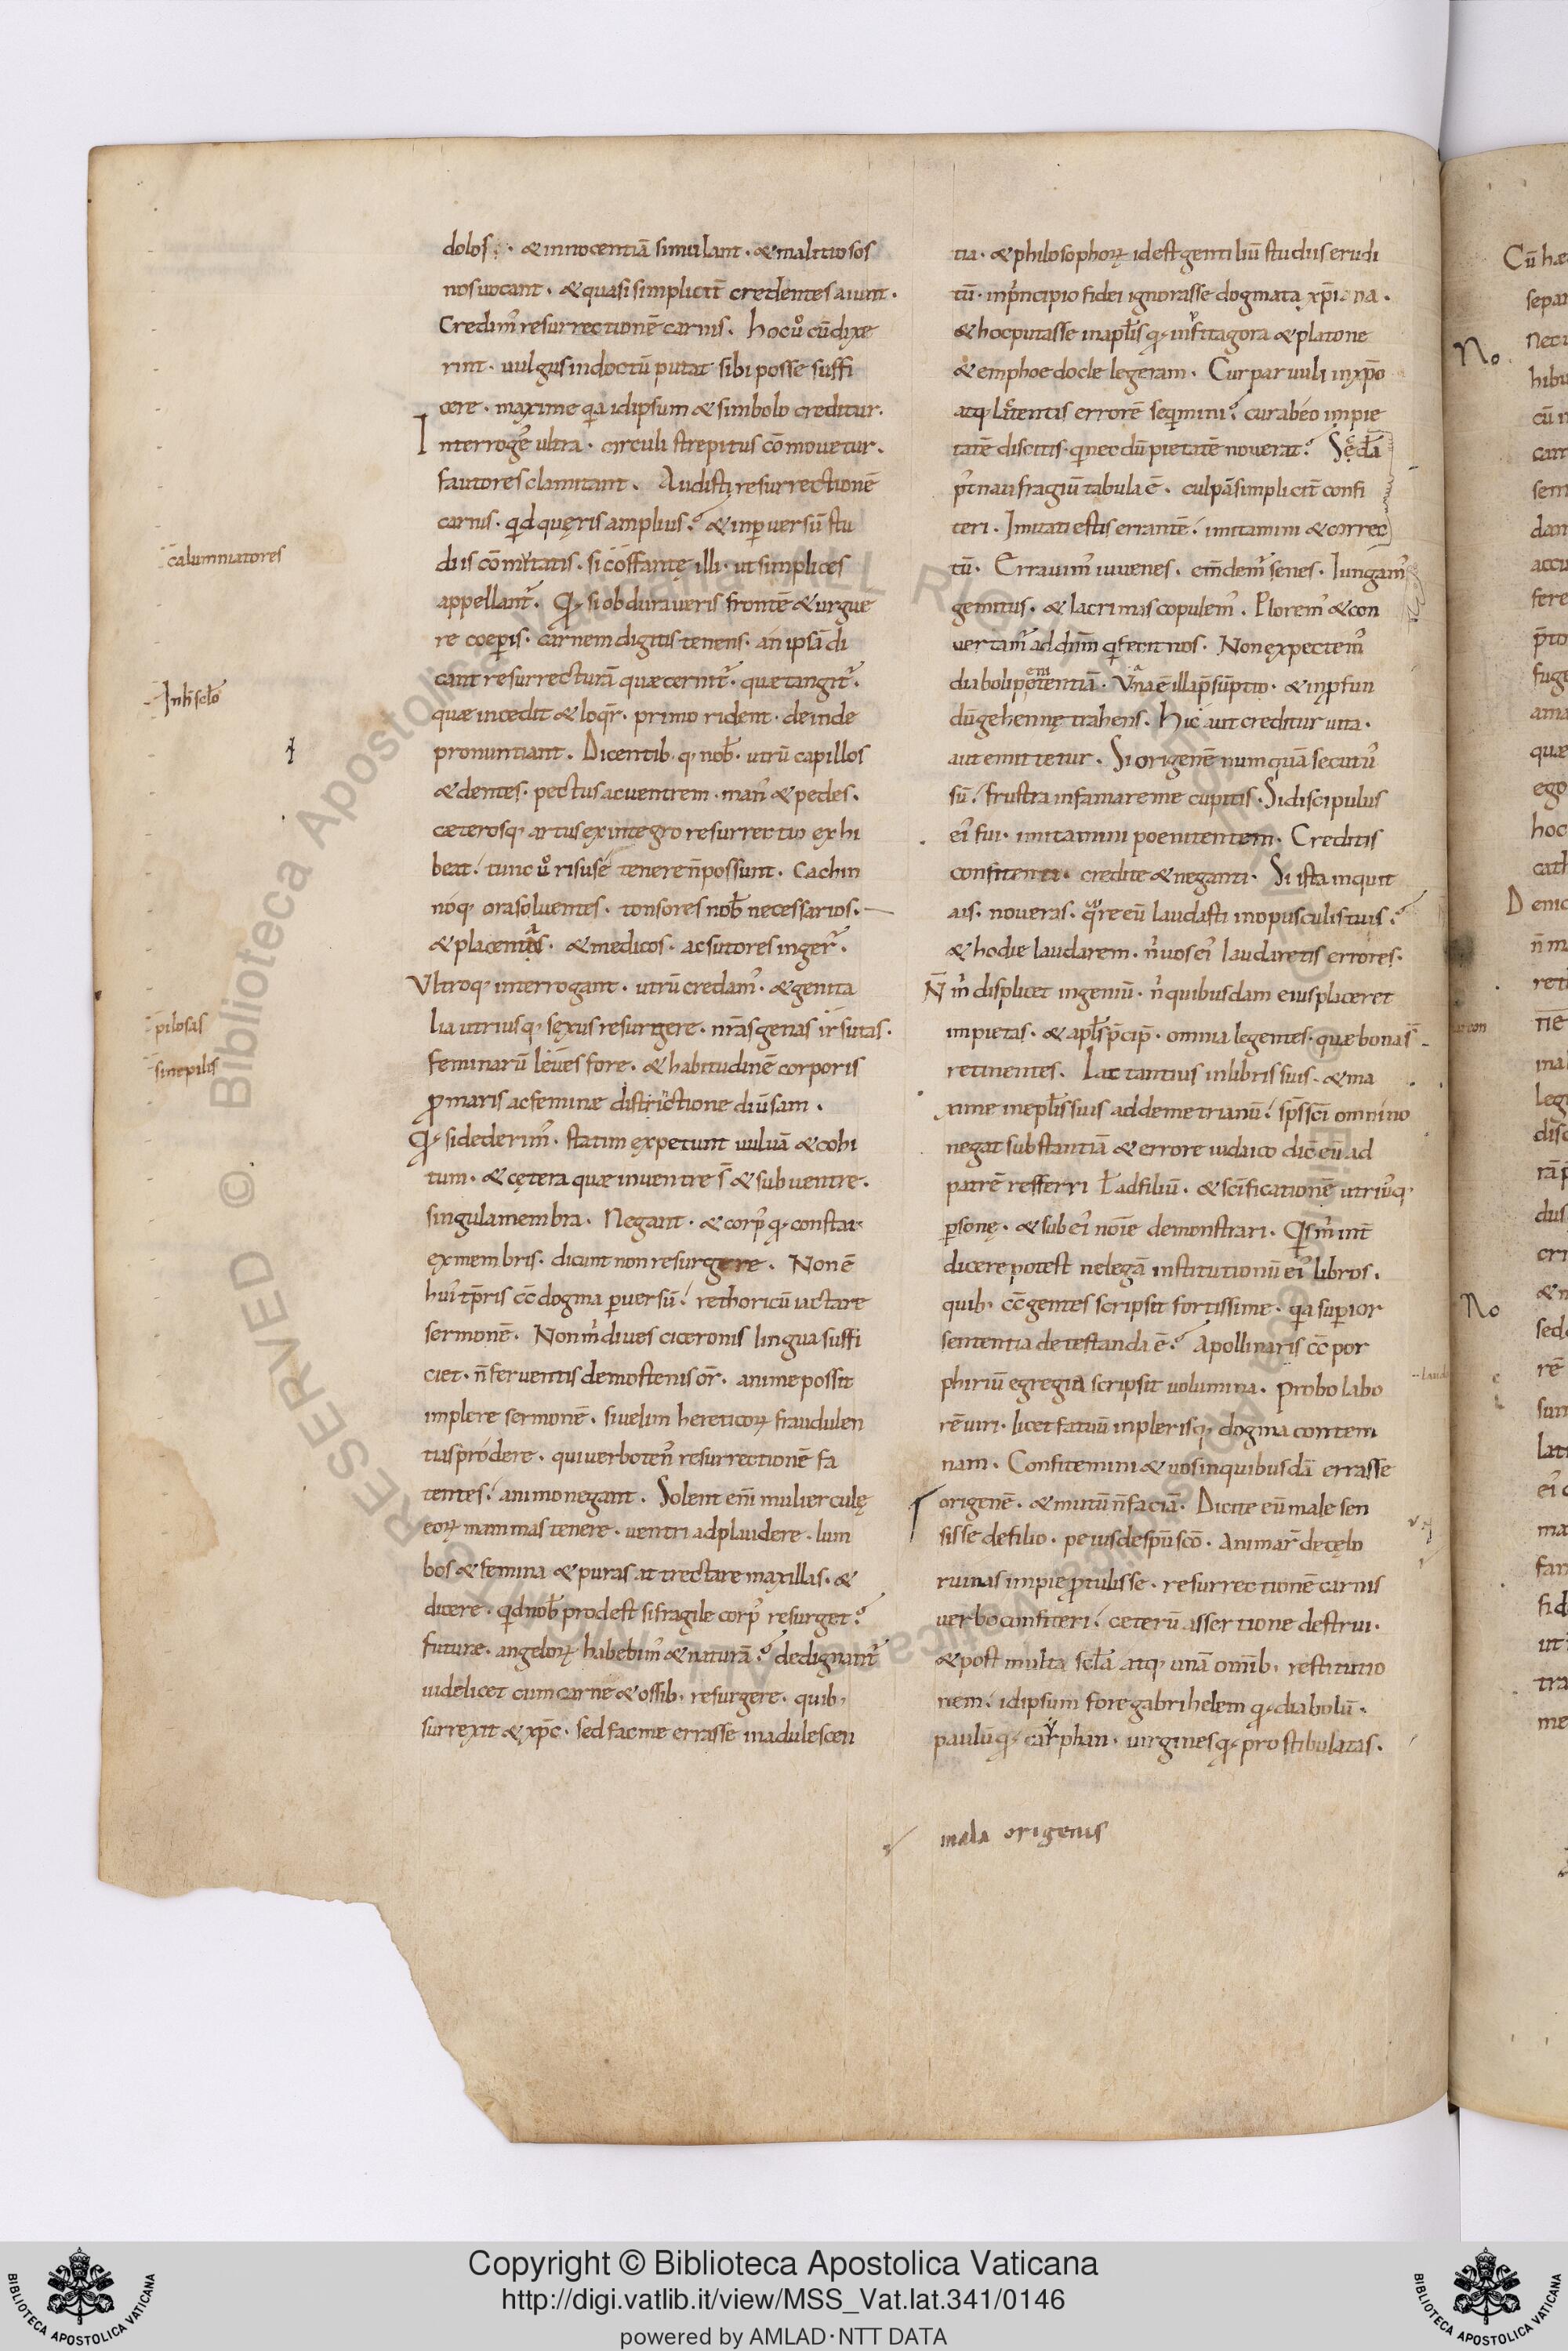 dolos · & innocentiā simulant · & malitiosos
nos uocant · & quasi simplicit̄ credentes aiunt ·
Credim᾿ resurrectionē carnis · hoc uͦ cū dixe
rint · uulgus indoctū putat sibi posse suffi
cere · maxime q̣a idipsum & simbolo creditur ·
Interroges ultra · circuli strepitus cōmouetur ·
fautores clamitant · Audisti resurrectionē
carnis · qd quęris amplius? & in ꝑuersū stu
diis cōmutatis · sicoffantę illi · ut simplices
appellant᾿ · Q si obduraueris frontē & urgue
re coeperis · carnem digitis tenens · an ipsā di
cant resurrecturā quæ cernit᾿ · quæ tangit᾿ ·
quæ incedit & loqr̄ · primo rident · deinde
pronuntiant · Dicentib · q · nob̄ · utrū capillos
& dentes · pectus ac uentrem · man᾿ & pedes ·
cæterosq · artus ex integro resurrectio exhi
beat · tunc uͦ risu se tenere n̄ possunt · Cachin
noq · ora soluentes · tonsores nob̄ necessarios ·
& placentas · & medicos · ac sutores inger᾿ ·
Vltroq · interrogant · utrū credam᾿ · & genita
lia utriusq · sexus resurgere · nr̄as genas irsutas ·
feminarū leues fore · & habitudinē corporis
ꝓ maris ac feminæ distrinctione diūsam ·
Q si dederim᾿ · statim expetunt uuluā & cohi
tum · & cętera quæ in uentre s̄ & sub uentre ·
singula membra · Negant · & corp᾿ q · constat
ex membris · dicunt non resurgere · Non ē
hui᾿ tp̄ris cc̄ dogma ꝑuersū · rethoricū iactare
sermonē · Non m̄ diues ciceronis lingua suffi
ciet · n̄ feruentis demostenis or̄ · anime possit
implere sermonē · si uelim hereticoꝝ fraudulen
tias prodere · qui uerbo ten᾿ resurrectionē fa
tentes · animo negant · Solent enī mulierculę
eoꝝ mammas tenere · uentri adplaudere · lum
bos & femina & puras attrectare maxillas · &
dicere · qd nob̄ prodest si fragile corp᾿ resurget?
futuræ · angeloꝝ habebim᾿ & naturā? dedignant᾿
uidelicet cum carne & ossib · resurgere · quib ·
surrexit & xp̄c · sed fac me errasse in adulescen
tia · & philosophoꝝ id est gentiliū studiis erudi
tū · in principio fidei ignorasse dogmata xp̄iana ·
& hoc putasse in apl̄is q in fitagora & platone
& emphoedocle legeram · Cur paruuli in xp̄o
atq · lactentis errorē seqmini? cur ab eo impie
tatē discitis · qui necdū pietatē nouerat? Sęcd̄a
p᾿t naufragiū tabula ē · culpā simplicit̄ confi
teri · Imitati estis errantē · imitamini & correc
tū · Errauim᾿ iuuenes · em̄dem᾿ senes · Iungam᾿
gemitus · & lacrimas copulem᾿ · Plorem᾿ & con
uertam᾿ ad dn̄m q fecit nos · Non expectem᾿
diaboli potentiā · Vana ē illa p̄sūptio · & in ꝓfun
dū gehennę trahens · Hic aut creditur uita ·
aut emittetur · Si origenē numquā secut᾿
sū · frustra infamare me cupitis · Si discipulus
ei᾿ fui · imitamini poenitentem · Credidtis
confitenti · credite & neganti · Si ista inquit
ais · noueras · qre eū laudasti in opusculis tuis?
& hodie laudarem · n᾿ uos ei᾿ laudaretis errores ·
N̄ m̄ displicet ingeniū · n᾿ quibusdam eius placeret
impietas · & apl̄s p̄cip̄ · omnia legentes · quæ bona s̄
retinentes · Lactantius in libris suis · & ma
xime in epl̄is suis ad demetrianū · sp̄s sc̄i omnino
negat substantiā & errore iudaico dic̄ eū ad
patrē refferri l̄ ad filiū · & sc̄ificationē utri᾿q ·
ꝑsonę · & sub ei᾿ noīe demonstrari · Qis m̄ int̄
dicere potest ne legā institutionū ei᾿ libros ·
quib · cc̄ gentes scripsit fortissime · qa suꝑior
sententia detestanda ē? Apollinaris cc̄ por
phiriū egregia scripsit uolumina · Probo labo
rē uiri · licet fatuū in plerisq · dogma contem
nam · Confitemini & uos in quibusdā errasse
origenē · & mutū n̄ faciā · Dicite eū male sen
sisse de filio · peius de spū scō · Animar̄ de cęlo
ruinas impię ꝓtulisse · resurrectionē carnis
uerbo confiteri · ceterū assertione destrui ·
& post multa scl̄a atq · unā omīb · restitutio
nem · idipsum fore gabrihelem q diabolū ·
paulū q · cayphan · uirgines q · prostibulatas ·
calumniatores
In h̄ scl̄o
pilosas
sine pilis
mala origenis
Cū hæ
separ
Nec
hibu
cū n
No
No
Copyright © Biblioteca Apostolica Vaticana
http://digi.vatlib.it/view/MSS_Vat.lat.341/0146
powered by AMLAD·NTT DATA
BIBLIOTECA APOSTOLICA VATICANA
BIBLIOTECA APOSTOLICA VATICANA